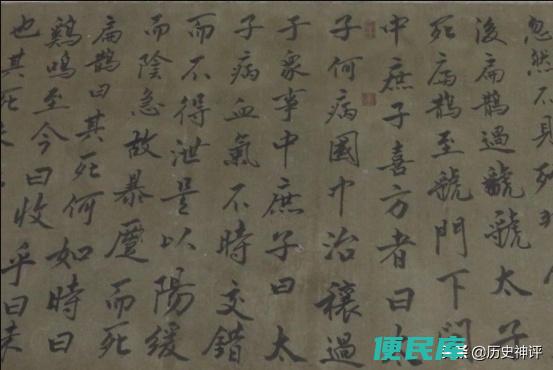 忽然不見
後扁鵲過虢虢太子
死扁鵲至虢門下問
中庶子喜方者曰太
子何病國中治穰過
于眾事中庶子曰太
子病血氣不時交錯
而不得泄是以陽緩
而陰急故暴而死
扁鵲曰其死何如時曰
鷄鳴至今曰收乎曰未
也其死未
便民库
头条 @历史神评